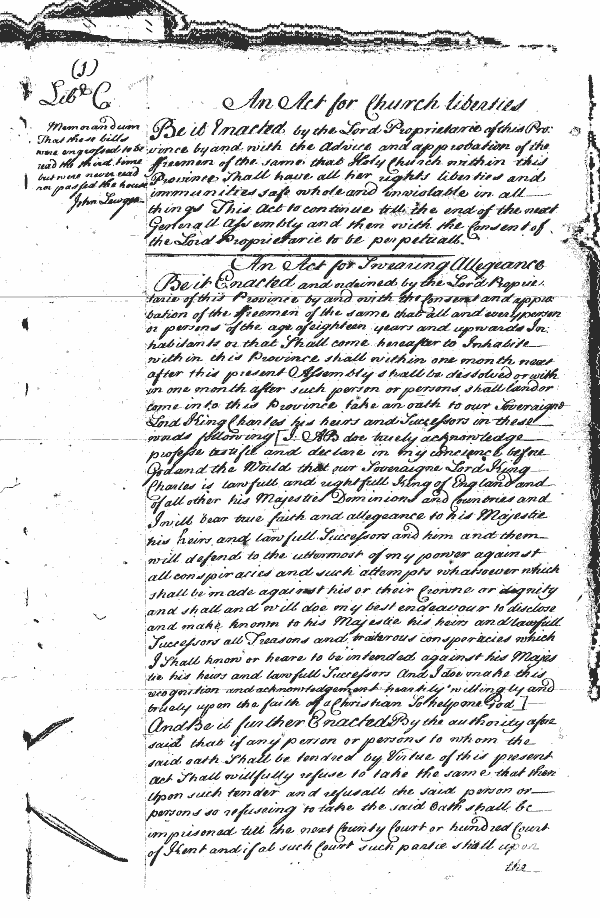 (1)
Libr C
Memorandum
That these bills
were engrossed to be
read the third time
but were never read
nor passed the house
John Lewger
An Act for Church liberties
Be it Enacted by the Lord Proprietarie of this Pro-
vince by and with the Advice and approbation of the
ffreemen of the same that Holy Church within this
Province Shall have all her rights liberties and
immunities safe whole and inviolable in all
things This Act to continue till the end of the next
Generall Assembly and then with the Consent of
the Lord Proprietarie to be perpetuall.
An Act for Swearing Allegeance
Be it Enacted and ordained by the Lord Proprie-
tarie of this Province by and with the Consent and appro-
bation of the ffreemen of the same that all and every person
or persons of the age of eighteen years and upwards In-
habitants or that Shall come hereafter to Inhabite
within this Province shall within one month next
after this present Assembly shall be dissolved or with
in one month after such person or persons shall land or
come into this Province take an oath to our Soveraigne
Lord King Charles his heirs and Successors in these
words following [I: AB doe truely acknowledge
professe testifie and declare in my concience before
God and the World that our Soveraigne Lord King
Charles is lawfull and rightfull King of England and
of all other his Majesties Dominions and Countries and
I will bear true faith and allegeance to his Majestie
his heirs and lawfull Successors and him and them
will defend to the uttermost of my power against
all conspiracies and such attempts whatsoever which
shall be made against his or their Crowne or dignity
and shall and will doe my best endeavour to disclose
and make known to his Majestie his heirs and lawfull
Successors all Treasons and traterous conspiracies which
I Shall know or heare to be intended against his Majes
tie his heirs and lawfull Successors And I doe make this
recognition and acknowledgement heartily willingly and
truely upon the faith of a Christian So help me God]
And Be it further Enacted By the authority afore
said that if any person or persons to whom the
said oath Shall be tendred by Virtue of this present
Act Shall willfully refuse to take the same that then
Upon such tender and refusall the said person or
persons so refuseing to take the said Oath shall be
imprisoned till the next County Court or hundred Court
of Kent and if at such Court such partie shall upon
the